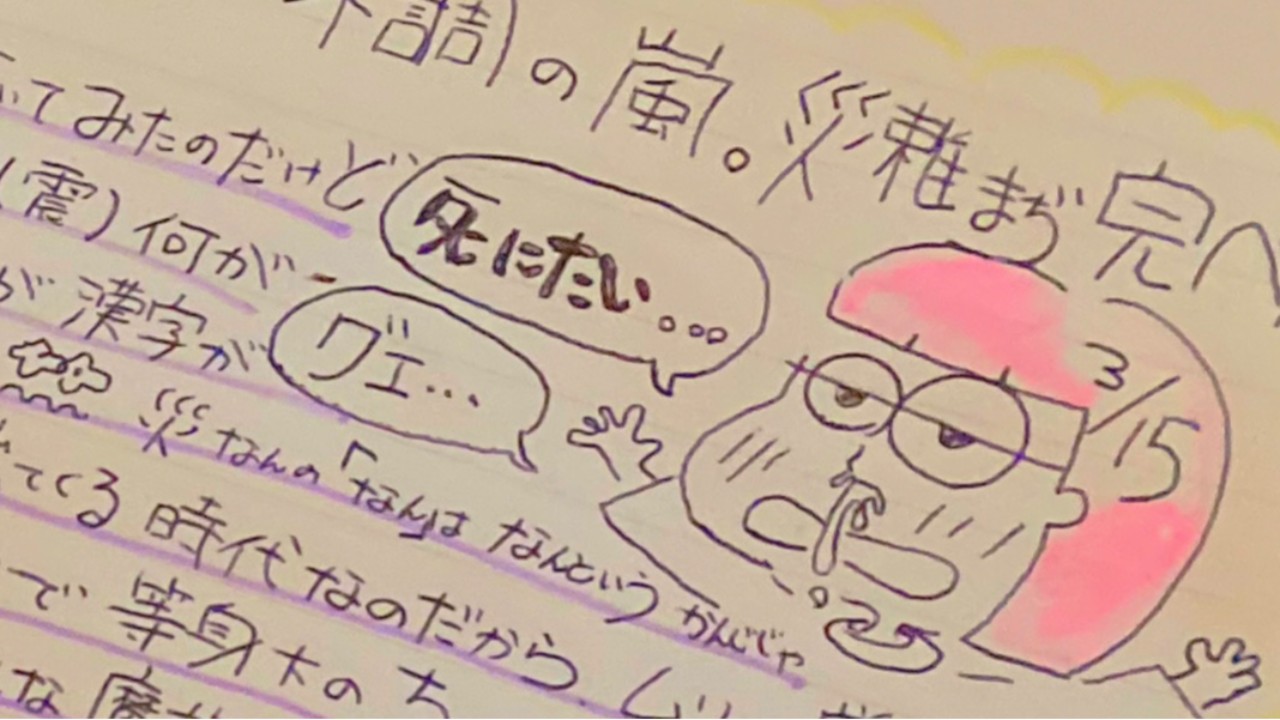 詰の嵐。災難まぢ完
てみたのだけど
死にたい...
(震)何が
グエ...
が漢字が
3/15
災なんの「なん」は なんという かんじじゃ
てくる時代なのだから
で等身大のち
な魔